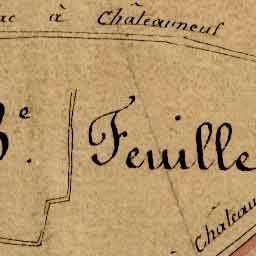 à Châteauneuf
Bᵉ. Feuille
Château